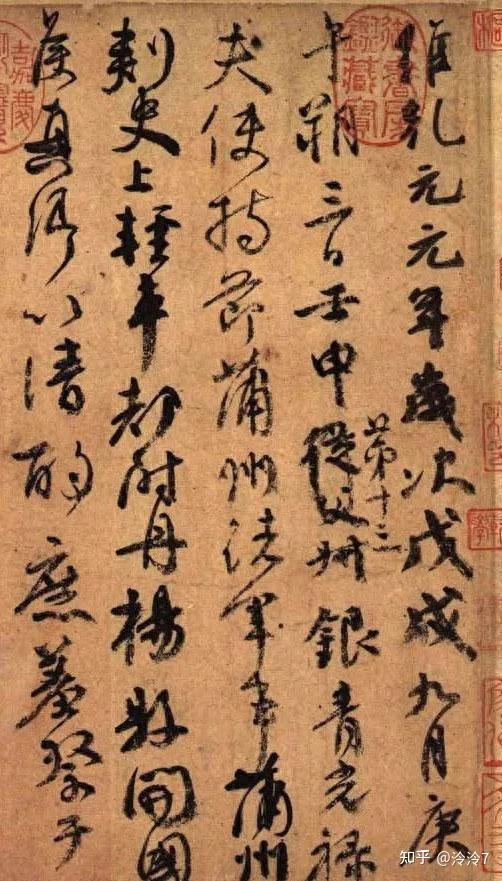 維乾元元年歲次戊戌九月庚
午朔三日壬申從父叔銀青光祿
第十三
夫使持節蒲州諸軍事蒲州
刺史上輕車都尉丹楊縣開國
侯真卿以清酌庶羞祭于
知乎 @泠泠7